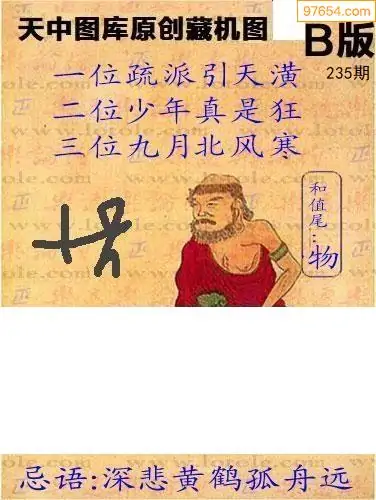 97654.com
天中图库原创藏机图
B版
235期
一位疏派引天潢
二位少年真是狂
三位九月北风寒
和值尾:物
忌语:深悲黄鹤孤舟远
www.lotole.com